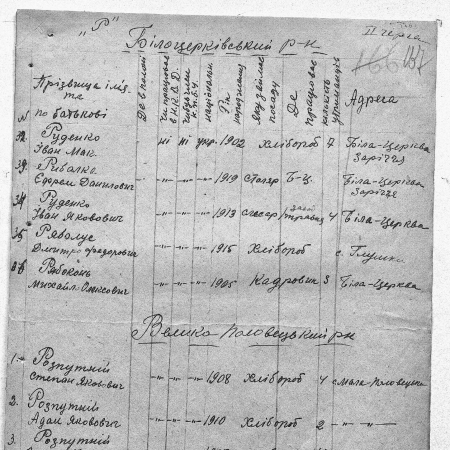 „Р"
ІІ черга
166 167
Білоцерківський р-н
№ Прізвища ім'я, та по батькові
Де в полоні
Чи працював в Н.К.В.Д.
національн
Рік народження
яку займає посаду
Де працював
кількість
Адреса
32. Руденко Іван Мак. ні ні укр. 1902 Хлібороб 7 Біла-Церква Заріччя
33. Рибалко Єфрем Данилович -"- -"- -"- 1919 столяр Б-Ц. Біла-Церква Заріччя
34. Руденко Іван Якович -"- -"- -"- 1913 слесар 4 Біла-Церква
35. Револус Дмитро Федорович -"- -"- -"- 1915 Хлібороб с. Глушки
36. Рябоконь Михайло Олексович -"- -"- -"- 1905 Кадровик 3 Біла-Церква
Велико Половецький рн
1. Розпутній Степан Якович -"- -"- -"- 1908 Хлібороб 4 с. Мала-Половецьк
2. Розпутній Адам Якович -"- -"- -"- 1910 Хлібороб 2 -"-
3. Розпутній